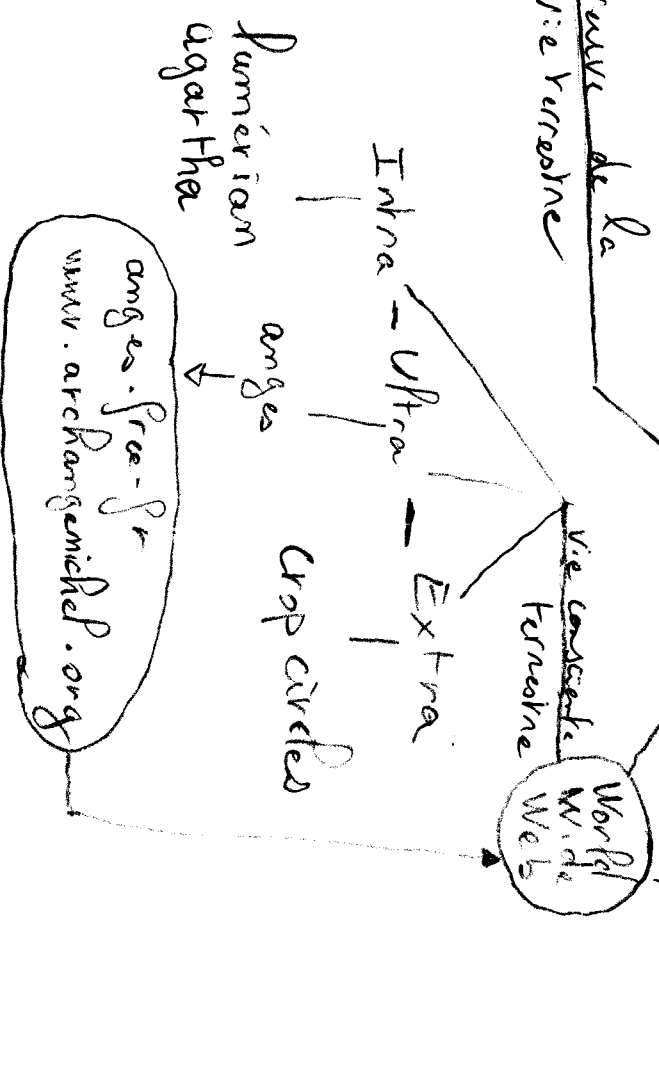 de la
vie terrestre
vie consciente
terrestre
World
Wide
Web
Intra - Ultra - Extra
lumérian
agartha
anges
Crop circles
anges.free.fr
www.archangemichel.org